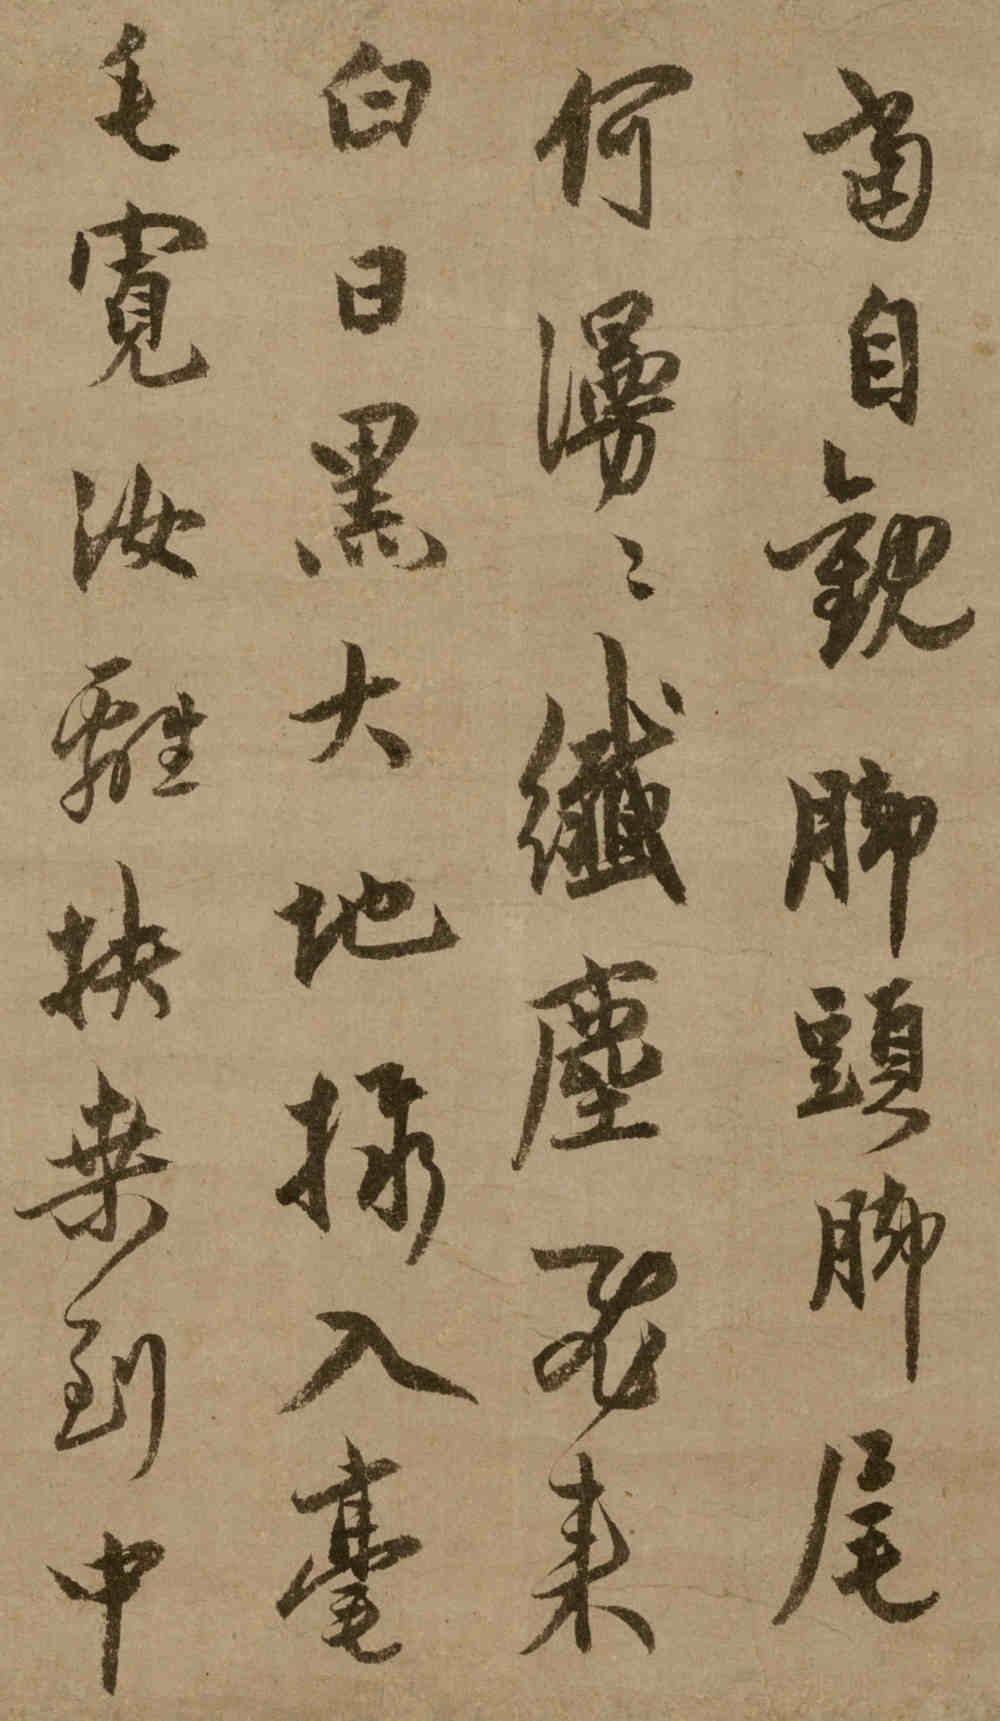 當自觀脚頭脚尾
何漫〻纖塵飛來
白日黑大地入毫
毛寬汝離扶桑到中